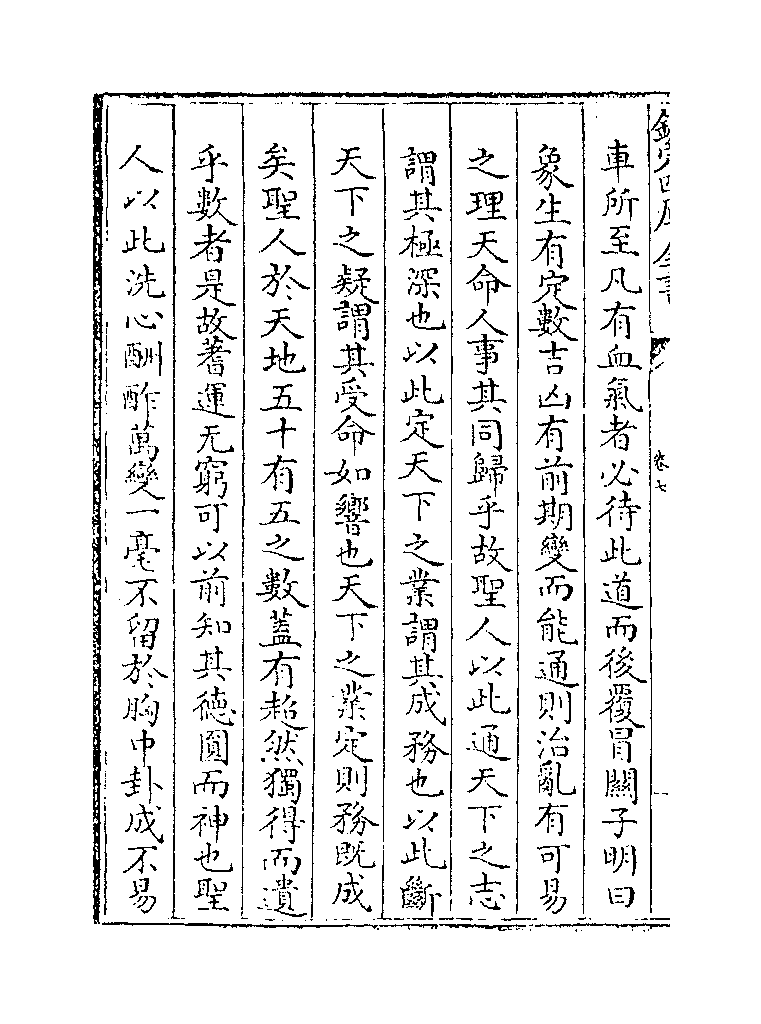 欽定四庫全書
卷七
車所至凡有血氣者必待此道而後覆冐關子明曰
象生有定數吉凶有前期變而能通則治亂有可易
之理天命人事其同歸乎故聖人以此通天下之志
謂其極深也以此定天下之業謂其成務也以此斷
天下之疑謂其受命如響也天下之業定則務既成
矣聖人於天地五十有五之數蓋有超然獨得而遺
乎數者是故蓍運无窮可以前知其德圓而神也聖
人以此洗心酬酢萬變一毫不留於胸中卦成不易